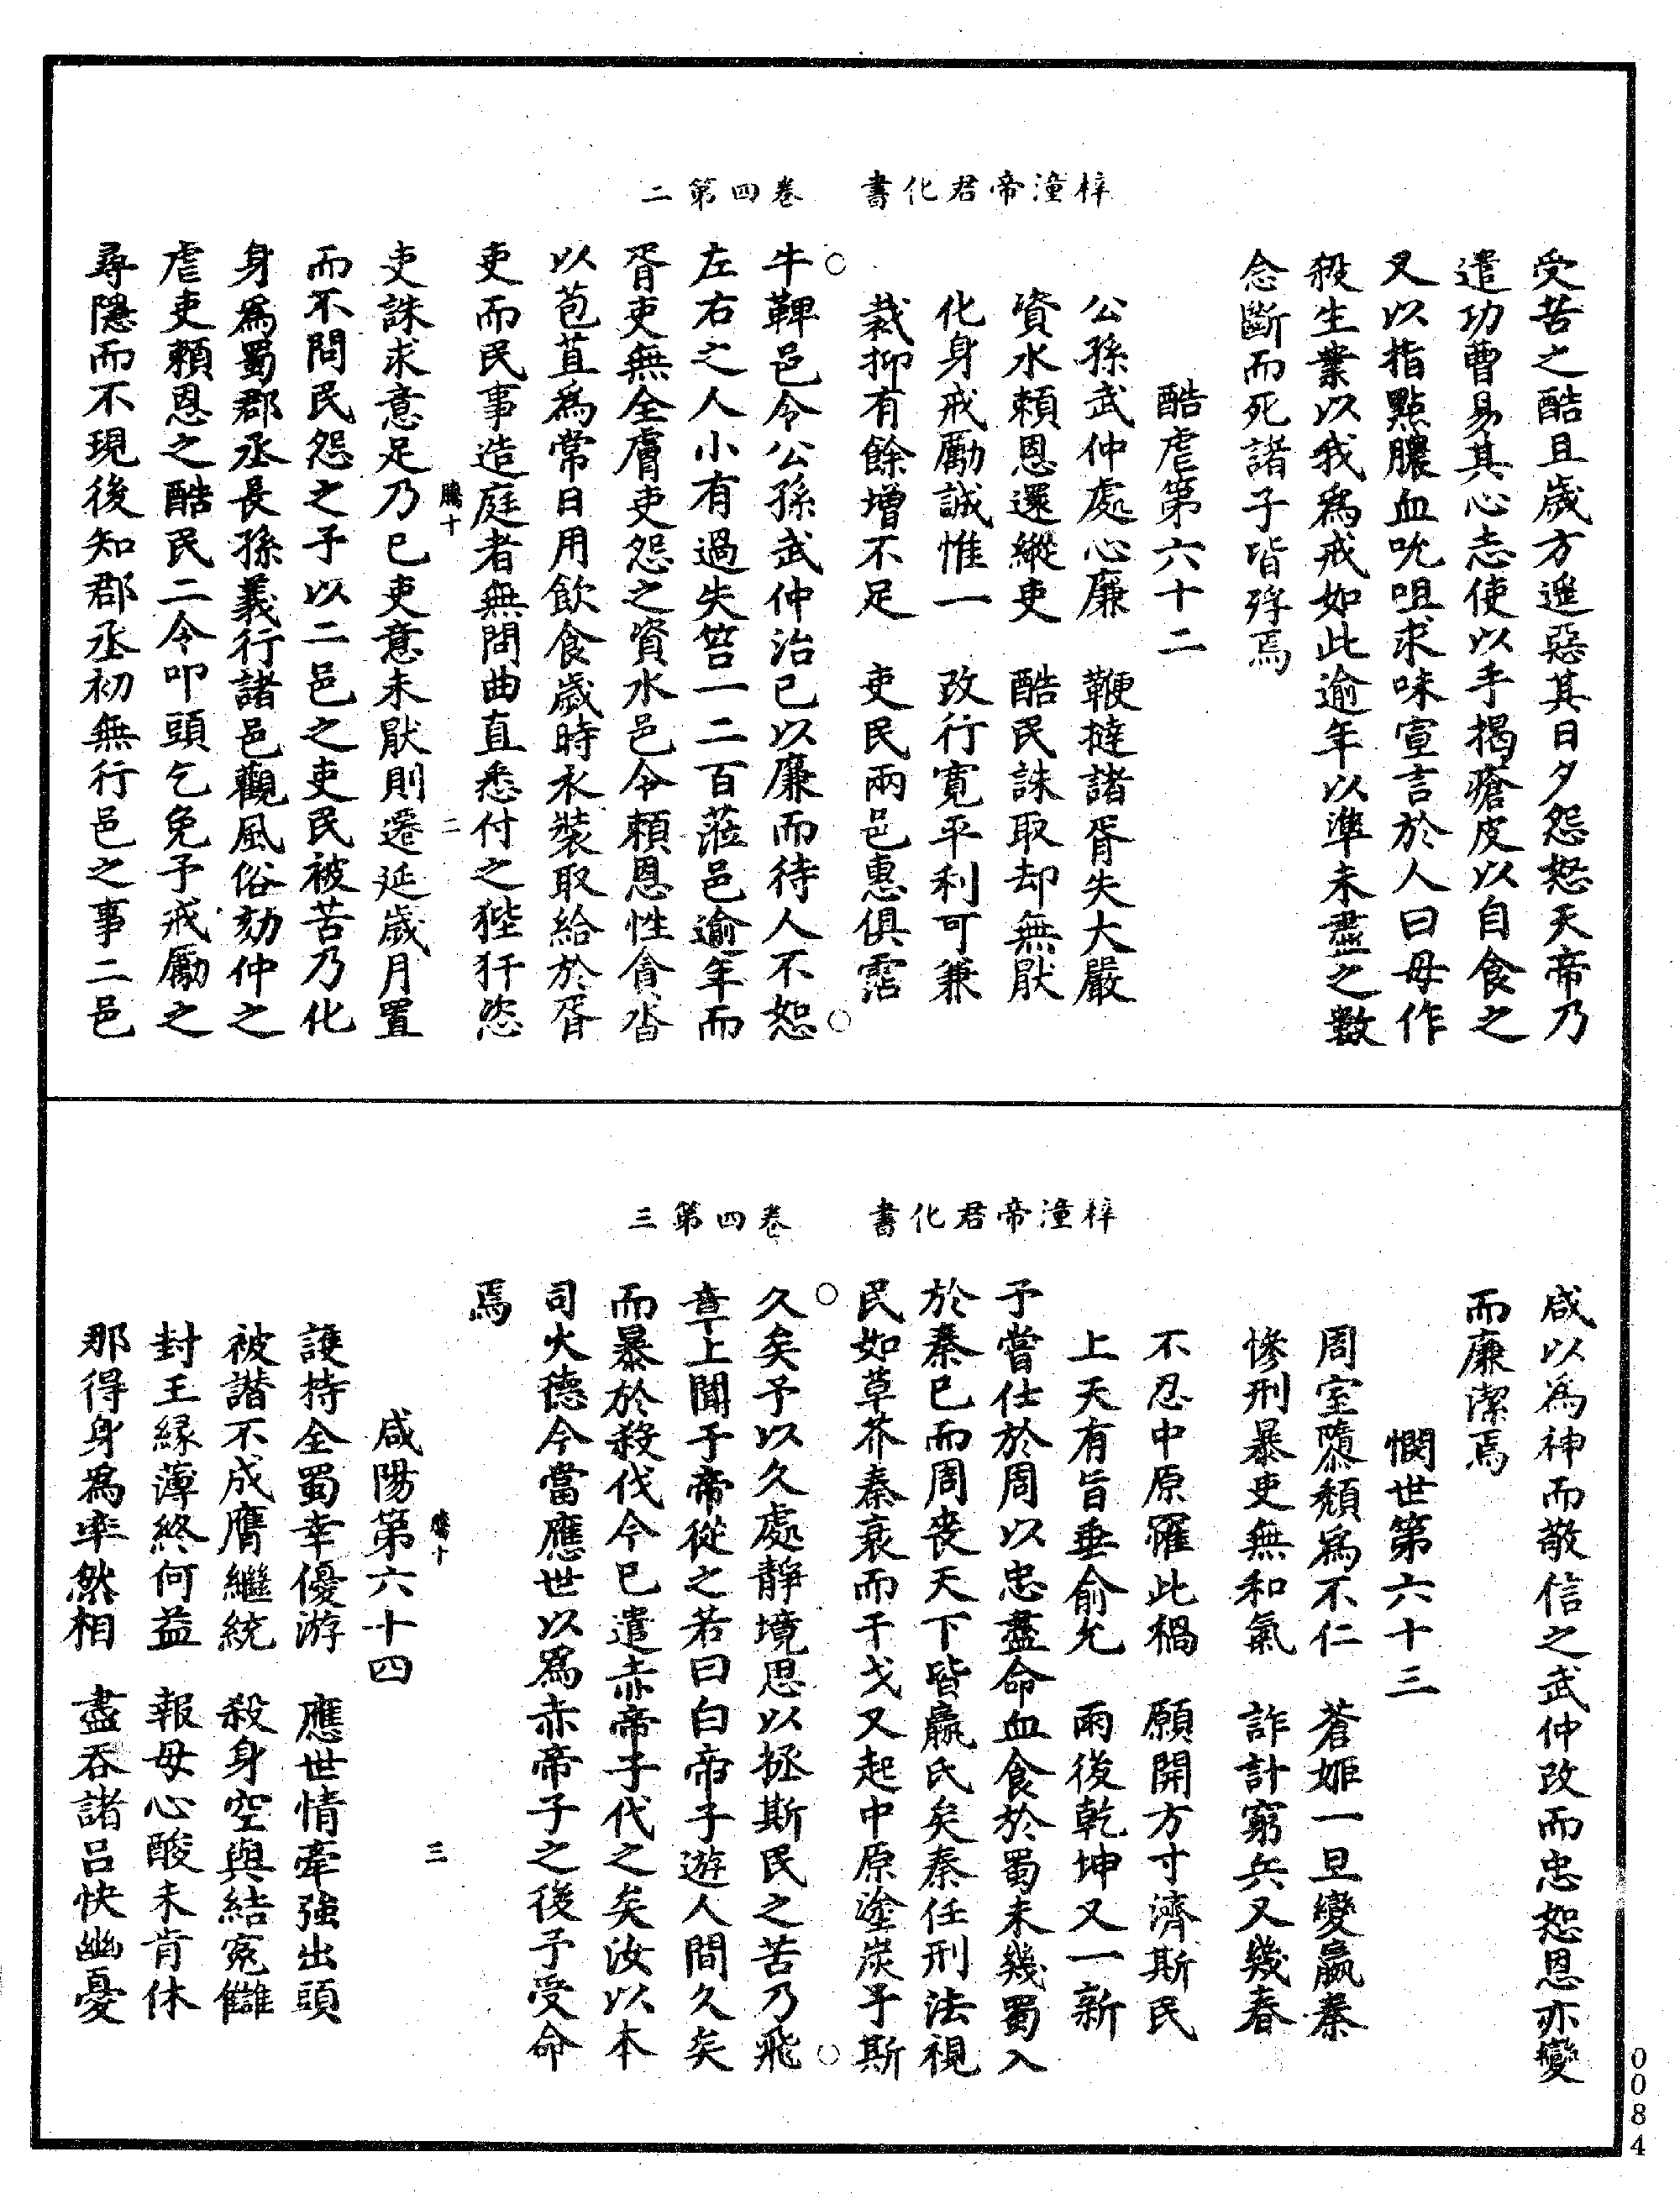 梓潼帝君化書　卷四第二
受苦之酷且歲方進惡其日夕怨怒天帝乃
遣功曹易其心志使以手揭瘡皮以自食之
又以指點膿血吮咀求味宣言於人曰毋作
殺生業以我爲戒如此逾年以準未盡之數
念斷而死諸子皆殍焉
酷虐第六十二
公孫武仲處心廉　鞭撻諸胥失大嚴
資水賴恩還縱吏　酷民誅取却無厭
化身戒勵誠惟一　改行寛平利可兼
裁抑有餘增不足　吏民兩邑惠俱霑
牛鞞邑令公孫武仲治已以廉而待人不恕
左右之人小有過失笞一二百蒞邑逾年而
胥吏無全膚吏怨之資水邑令賴恩性貪沓
以苞苴爲常日用飲食歲時衣裝取給於胥
吏而民事造庭者無問曲直悉付之狴犴恣
騰十　二
吏誅求意足乃已吏意未厭則遷延歲月置
而不問民怨之予以二邑之吏民被苦乃化
身爲蜀郡丞長孫義行諸邑觀風俗劾仲之
虐吏賴恩之酷民二令叩頭乞免予戒勵之
尋隱而不現後知郡丞初無行邑之事二邑
梓潼帝君化書　卷四第三
咸以爲神而敬信之武仲改而忠恕恩亦變
而廉潔焉
憫世第六十三
周室隳頹爲不仁　蒼姬一旦變嬴秦
慘刑暴吏無和氣　詐計窮兵又幾春
不忍中原罹此禍　願開方寸濟斯民
上天有旨垂俞允　雨後乾坤又一新
予嘗仕於周以忠盡命血食於蜀未幾蜀入
於秦已而周喪天下皆嬴氏矣秦任刑法視
民如草芥秦衰而干戈又起中原塗炭予斯
久矣予以久處靜境思以拯斯民之苦乃飛
章上聞于帝帝從之若曰白帝子遊人間久矣
而暴於殺伐今已遣赤帝子代之矣汝以本
司火德今當應世以爲赤帝子之後予受命
焉
騰十　三
咸陽第六十四
護持全蜀幸優游　應世情牽強出頭
被譖不成膺繼統　殺身空與結冤讎
封王緣薄終何益　報母心酸未肯休
那得身爲率然相　盡吞諸呂快幽憂
0084